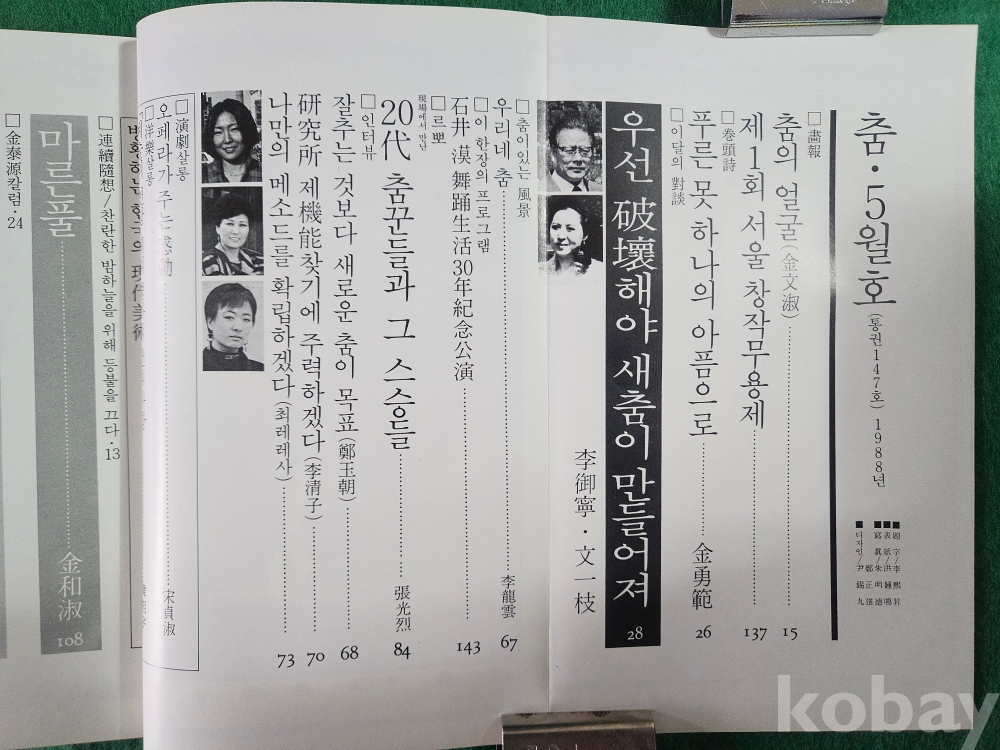 춤·5월호
(통권147호) 1988년
■題字/李熙昇
■表紙/洪鍾鳴
■寫眞/朱明德
鄭正雄
■디자인/尹錫九
□畵報
춤의 얼굴(金文淑) 15
제1회 서울 창작무용제 137
□卷頭詩
푸른 못 하나의 아픔으로 金勇範 26
□이달의 對談
우선 破壞해야 새춤이 만들어져 28
李御寧·文一枝
□춤이있는 風景
우리네 춤 李龍雲 67
□이 한장의 프로그램
石井 漠 舞踊生活 30年紀念公演 143
□르뽀
現場에서 만난
20代 춤꾼들과 그 스승들 張光烈 84
□인터뷰
잘추는 것보다 새로운 춤이 목표(鄭玉朝) 68
研究所 제機能찾기에 주력하겠다(李淸子) 70
나만의 메소드를 확립하겠다(최레레사) 73
□演劇살롱
오페라가 주는 感動 宋貞淑
□洋樂살롱
방황하는 한국의 現代美術
□連續隨想/찬란한 밤하늘을 위해 등불을 끄다·13
마른풀 金和淑 108
□金泰源칼럼·24
kobay